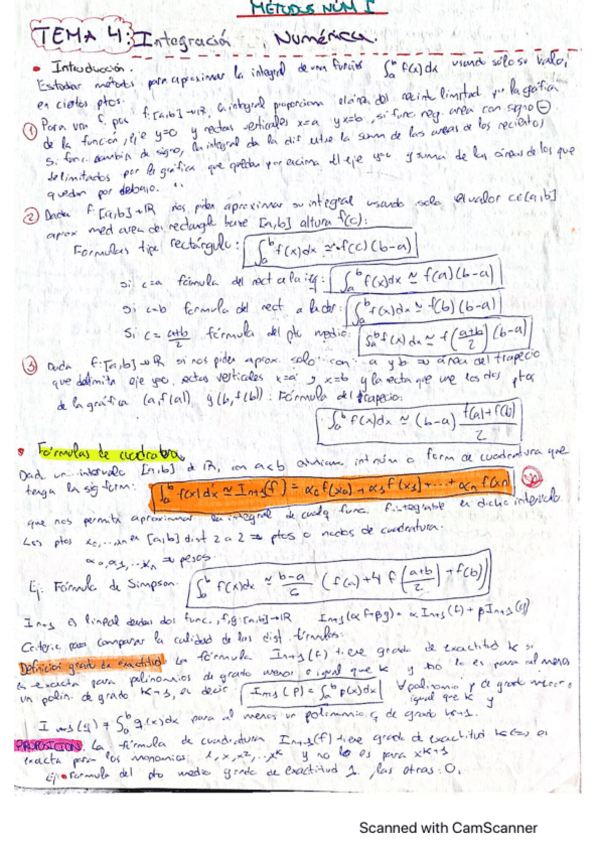 MÉTODOS NÚM I
TEMA 4: Integración Numérica.
• Introducción.
Estudiar métodos para aproximar la integral de una función ∫ₐᵇ f(x)dx usando sólo su valor
en ciertos ptos.
① Para una f. pos f:[a,b]→ℝ, la integral proporciona el área del recinto limitado por la gráfica
de la función, eje y=0 y rectas verticales x=a y x=b, si func neg. area con signo ⊖
Si func. cambia de signo, la integral da la dif entre la suma de las areas de los recintos
delimitados por la gráfica que quedan por encima del eje y suma de las áreas de los que
quedan por debajo.
② Dada f:[a,b]→ℝ nos piden aproximar su integral usando solo el valor c∈[a,b]
aprox med area del rectangle base [a,b] altura f(c):
Formulas tipo rectángulo: ∫ₐᵇ f(x)dx ≃ f(c)(b-a)
Si c=a fórmula del rect a la izq: ∫ₐᵇ f(x)dx ≃ f(a)(b-a)
Si c=b formula del rect a la der: ∫ₐᵇ f(x)dx ≃ f(b)(b-a)
Si c = (a+b)/2 fórmula del pto medio: ∫ₐᵇ f(x)dx ≃ f((a+b)/2)(b-a)
③ Dada f:[a,b]→ℝ si nos piden aprox. solo con a y b área del trapecio
que delimita eje rectas verticales x=a y x=b y la recta que une los dos ptos
de la gráfica (a,f(a)) y (b,f(b)): Fórmula del trapecio:
∫ₐᵇ f(x)dx ≃ (b-a) (f(a)+f(b))/2
• Fórmulas de cuadratura
Dado un intervalo [a,b] de ℝ, con a<b form de cuadratura que
tenga la sig form: ∫ₐᵇ f(x)dx ≃ Iₙ₊₁(f) = α₀f(x₀)+α₁f(x₁)+...+αₙf(xₙ)
que nos permita aproximar la integral de cualq func. f integrable en dicho intervalo
Los ptos x₀,...,xₙ en [a,b] dist 2 a 2 ⇒ ptos o nodos de cuadratura.
α₀,α₁,...αₙ ⇒ pesos
Ej: Fórmula de Simpson: ∫ₐᵇ f(x)dx ≃ (b-a)/6 (f(a)+4f((a+b)/2)+f(b))
Iₙ₊₁ es lineal dadas dos func., f,g:[a,b]→ℝ Iₙ₊₁(αf+βg) = αIₙ₊₁(f)+βIₙ₊₁(g)
Criterio para comparar la calidad de las dist fórmulas:
Definición grado de exactitud: La fórmula Iₙ₊₁(f) tiene grado de exactitud k si
es exacta para polinomios de grado menor o igual que k y no lo es para al menos
un polin. de grado k+1, es decir Iₙ₊₁(p) = ∫ₐᵇ p(x)dx ∀ polinomio p de grado menor o
igual que k y
Iₙ₊₁(q) ≠ ∫ₐᵇ q(x)dx para al menos un polinomio q de grado k+1.
PROPOSICION: La fórmula de cuadratura Iₙ₊₁(f) tiene grado de exactitud k ⇔ es
exacta para los monomios 1, x, x²,..., xᵏ y no lo es para xᵏ⁺¹
Ej: • formula del pto medio grado de exactitud 1, las otras: 0.
Scanned with CamScanner